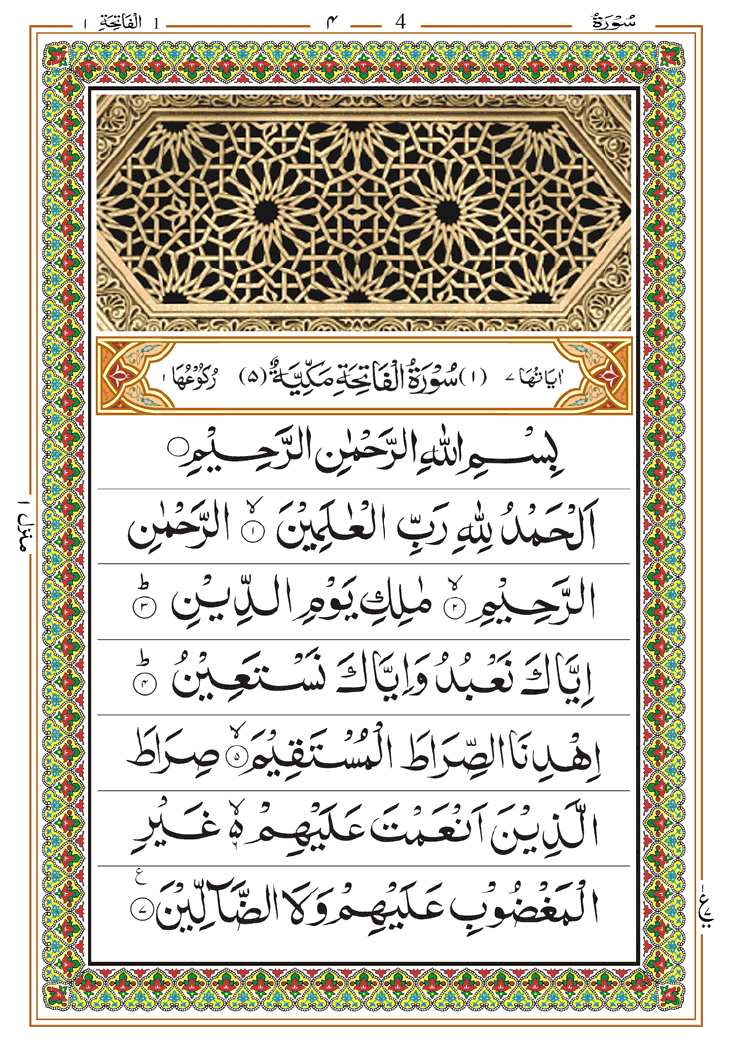 سُوْرَةُ 4 ۴ 1 اَلْفَاتِحَةِ ۱
اٰيَاتُهَا ۷ (۱) سُوْرَةُ الْفَاتِحَةِ مَكِّيَّةٌ (۵) رُكُوْعُهَا ۱
بِسْمِ اللهِ الرَّحْمٰنِ الرَّحِيْمِ ○
اَلْحَمْدُ لِلّٰهِ رَبِّ الْعٰلَمِيْنَ ۙ﴿۱﴾ الرَّحْمٰنِ
الرَّحِيْمِ ۙ﴿۲﴾ مٰلِكِ يَوْمِ الدِّيْنِ ؕ﴿۳﴾
اِيَّاكَ نَعْبُدُ وَاِيَّاكَ نَسْتَعِيْنُ ؕ﴿۴﴾
اِهْدِنَا الصِّرَاطَ الْمُسْتَقِيْمَ ۙ﴿۵﴾ صِرَاطَ
الَّذِيْنَ اَنْعَمْتَ عَلَيْهِمْ ۙ۵ غَيْرِ
الْمَغْضُوْبِ عَلَيْهِمْ وَلَا الضَّآلِّيْنَ ﴿۷﴾ ع
منزل ۱
ع ۷